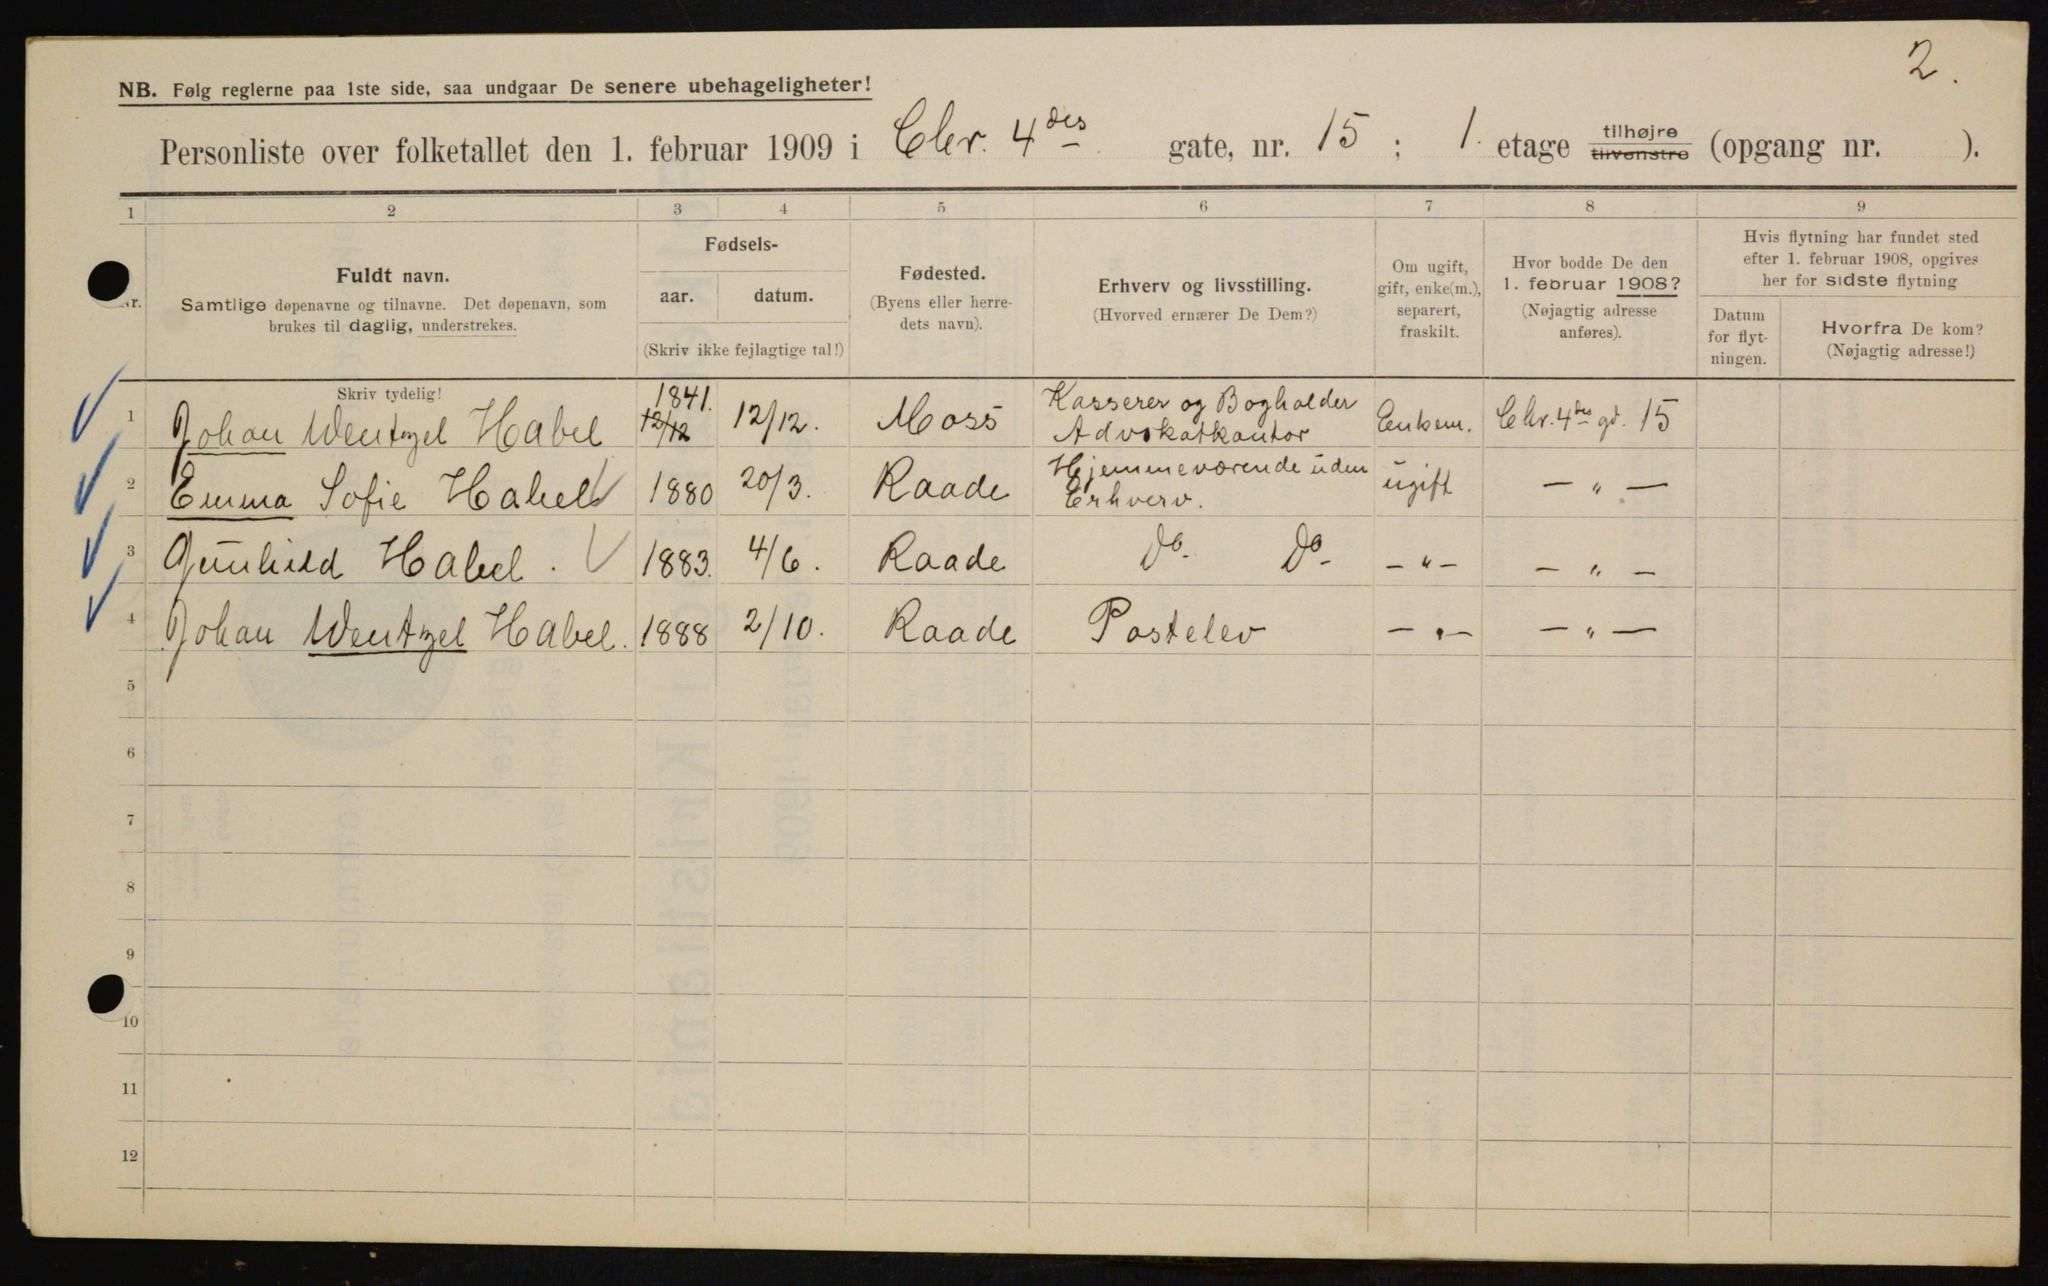 2.
NB. Følg reglerne paa 1ste side, saa undgaar De senere ubehageligheter!
Personliste over folketallet den 1. februar 1909 i Chr. 4des gate, nr. 15 ; 1. etage tilhøjre tilvenstre (opgang nr. ).
1 2 3 4 5 6 7 8 9
Nr.
Fuldt navn.
Samtlige døpenavne og tilnavne. Det døpenavn, som
brukes til daglig, understrekes.
Skriv tydelig!
Fødsels-
aar. datum.
(Skriv ikke fejlagtige tal!)
Fødested.
(Byens eller herre-
dets navn).
Erhverv og livsstilling.
(Hvorved ernærer De Dem?)
Om ugift,
gift, enke(m.),
separert,
fraskilt.
Hvor bodde De den
1. februar 1908?
(Nøjagtig adresse
anføres).
Hvis flytning har fundet sted
efter 1. februar 1908, opgives
her for sidste flytning
Datum
for flyt-
ningen.
Hvorfra De kom?
(Nøjagtig adresse!)
1 Johan Wentzel Habel 1841. 12/12 12/12. Moss Kasserer og Bogholder Advokatkontor Enkem. Chr. 4des gd. 15
2 Emma Sofie Habel 1880 20/3. Raade Hjemmeværende uden Erhverv. ugift — " —
3 Gunhild Habel. 1883. 4/6. Raade Do. Do. — " — — " —
4 Johan Wentzel Habel. 1888 2/10. Raade Postelev — " — — " —
5
6
7
8
9
10
11
12